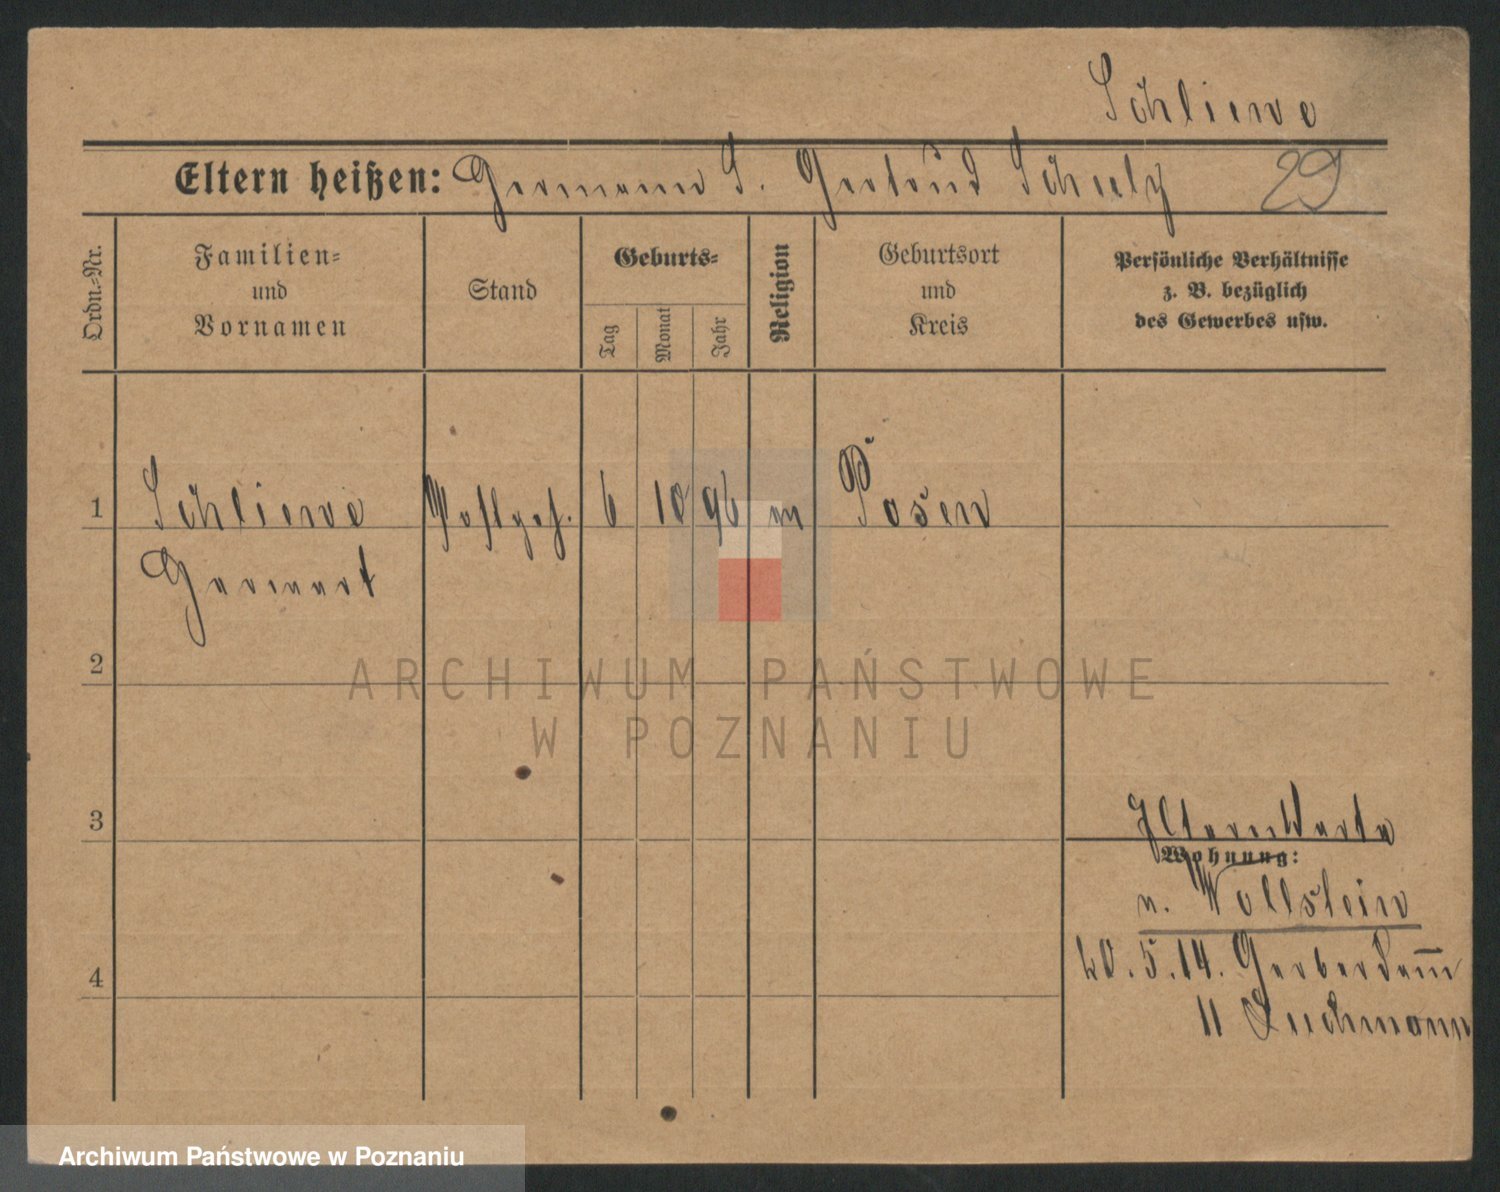 Schliewe
Eltern heißen: Hermann S. Gertrud Schulz 29
Ordn.-Nr.
Familien-
und
Vornamen
Stand
Geburts-
Tag
Monat
Jahr
Religion
Geburtsort
und
Kreis
Persönliche Verhältnisse
z. B. bezüglich
des Gewerbes usw.
1 Schliewe 6 10 96 Posen
2
3
4
Wohnung:
n. Wollstein
20.5.14. Gerberdamm
11
ARCHIWUM PAŃSTWOWE
W POZNANIU
Archiwum Państwowe w Poznaniu